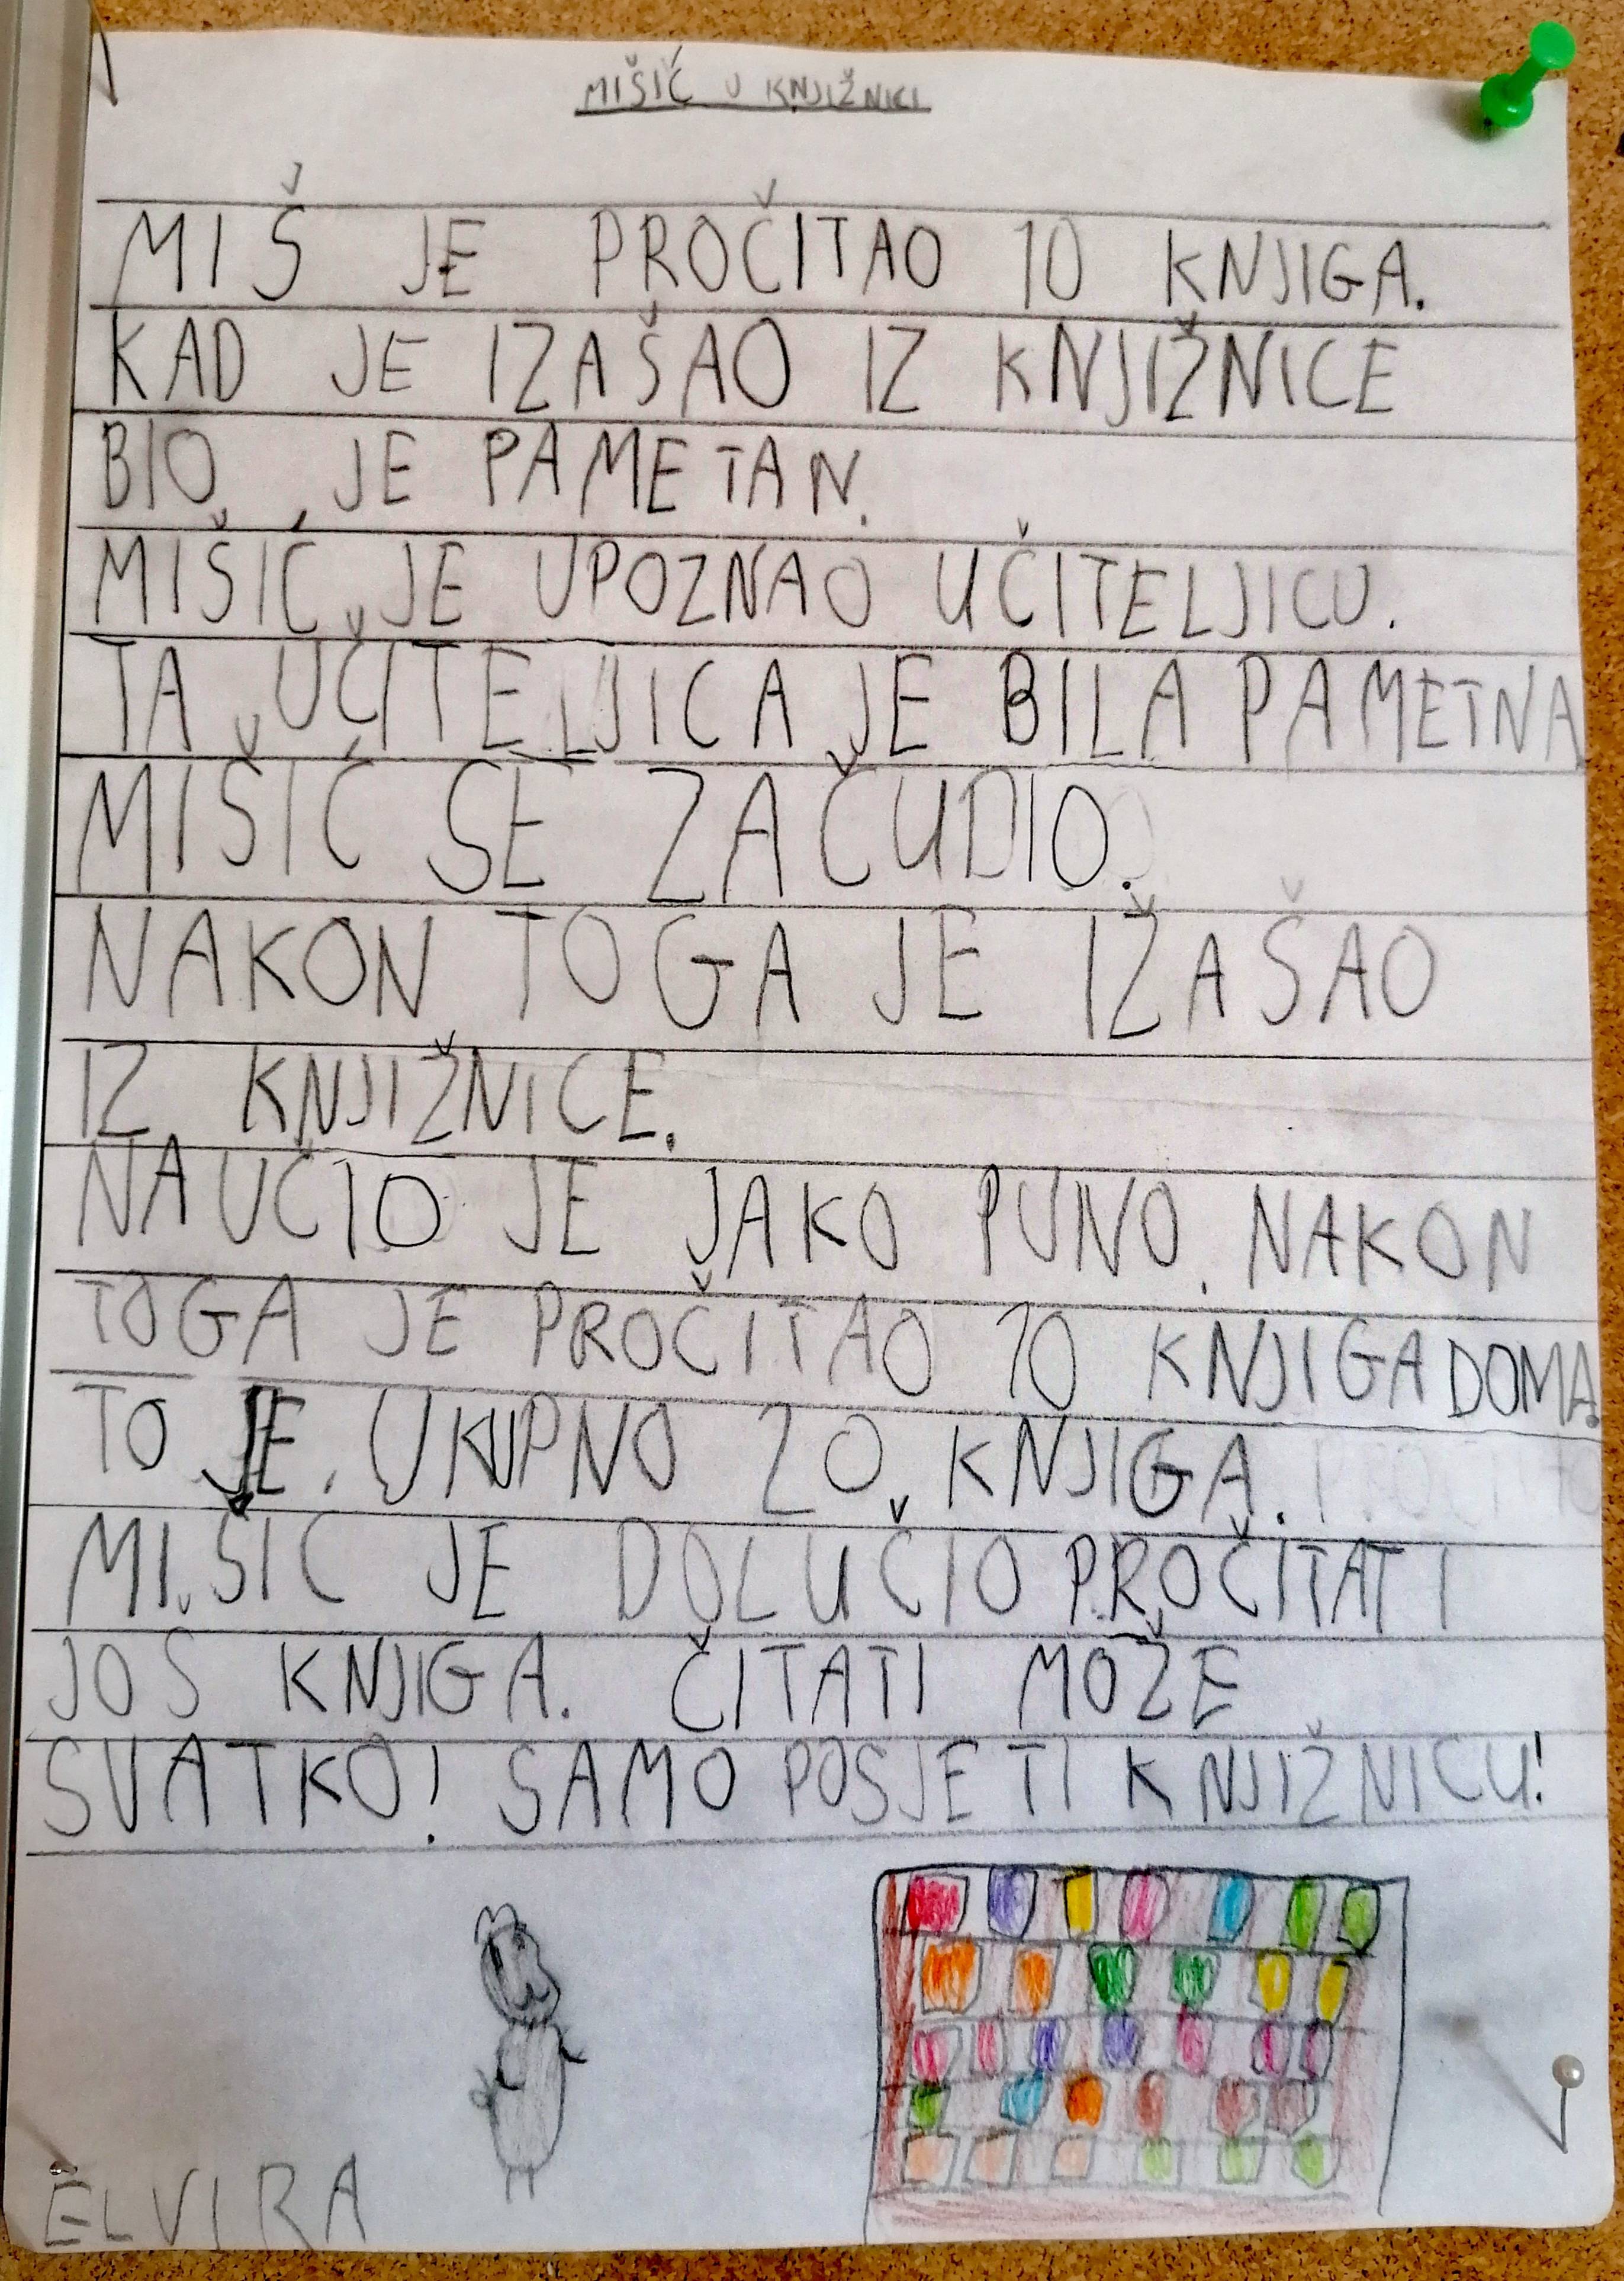 MIŠIĆ U KNJIŽNICI
MIŠ JE PROČITAO 10 KNJIGA.
KAD JE IZAŠAO IZ KNJIŽNICE
BIO JE PAMETAN.
MIŠIĆ JE UPOZNAO UČITELJICU.
TA UČITELJICA JE BILA PAMETNA
MIŠIĆ SE ZAČUDIO.
NAKON TOGA JE IŽAŠAO
IZ KNJIŽNICE.
NAUČIO JE JAKO PUNO. NAKON
TOGA JE PROČITAO 10 KNJIGA DOMA.
TO JE. UKUPNO 20 KNJIGA.
MIŠIC JE DOLUČIO PROČITATI
JOŠ KNJIGA. ČITATI MOŽE
SVATKO! SAMO POSJETI KNJIŽNICU!
ELVIRA